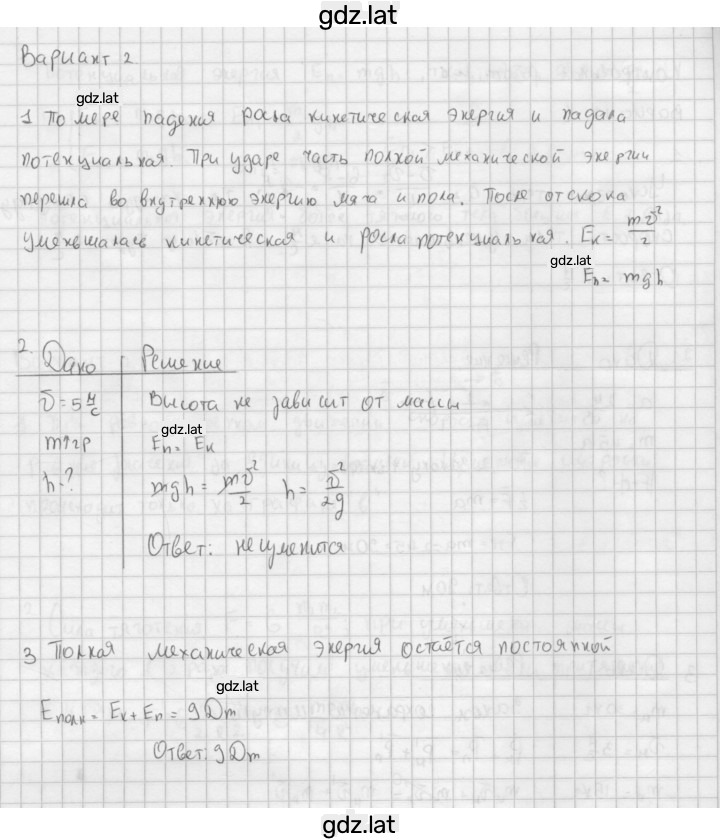 gdz.lat
Вариант 2
gdz.lat
1 По мере падения росла кинетическая энергия и падала
потенциальная. При ударе часть полной механической энергии
перешла во внутреннюю энергию мяча и пола. После отскока
уменьшалась кинетическая и росла потенциальная. Eк = mv²/2
gdz.lat
Eп = mgh
2. Дано Решение
v = 5 м/с Высота не зависит от массы
gdz.lat
m↑2р Eп = Eк
h-? mgh = mv²/2 h = v²/2g
Ответ: не изменится
3 Полная механическая энергия остаётся постоянной
gdz.lat
Eполн = Eк + Eп = 9 Дж
Ответ: 9 Дж
gdz.lat